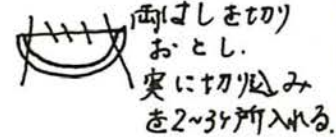 両はしを切り
おとし.
実に切り込み
を2~3ヶ所入れる